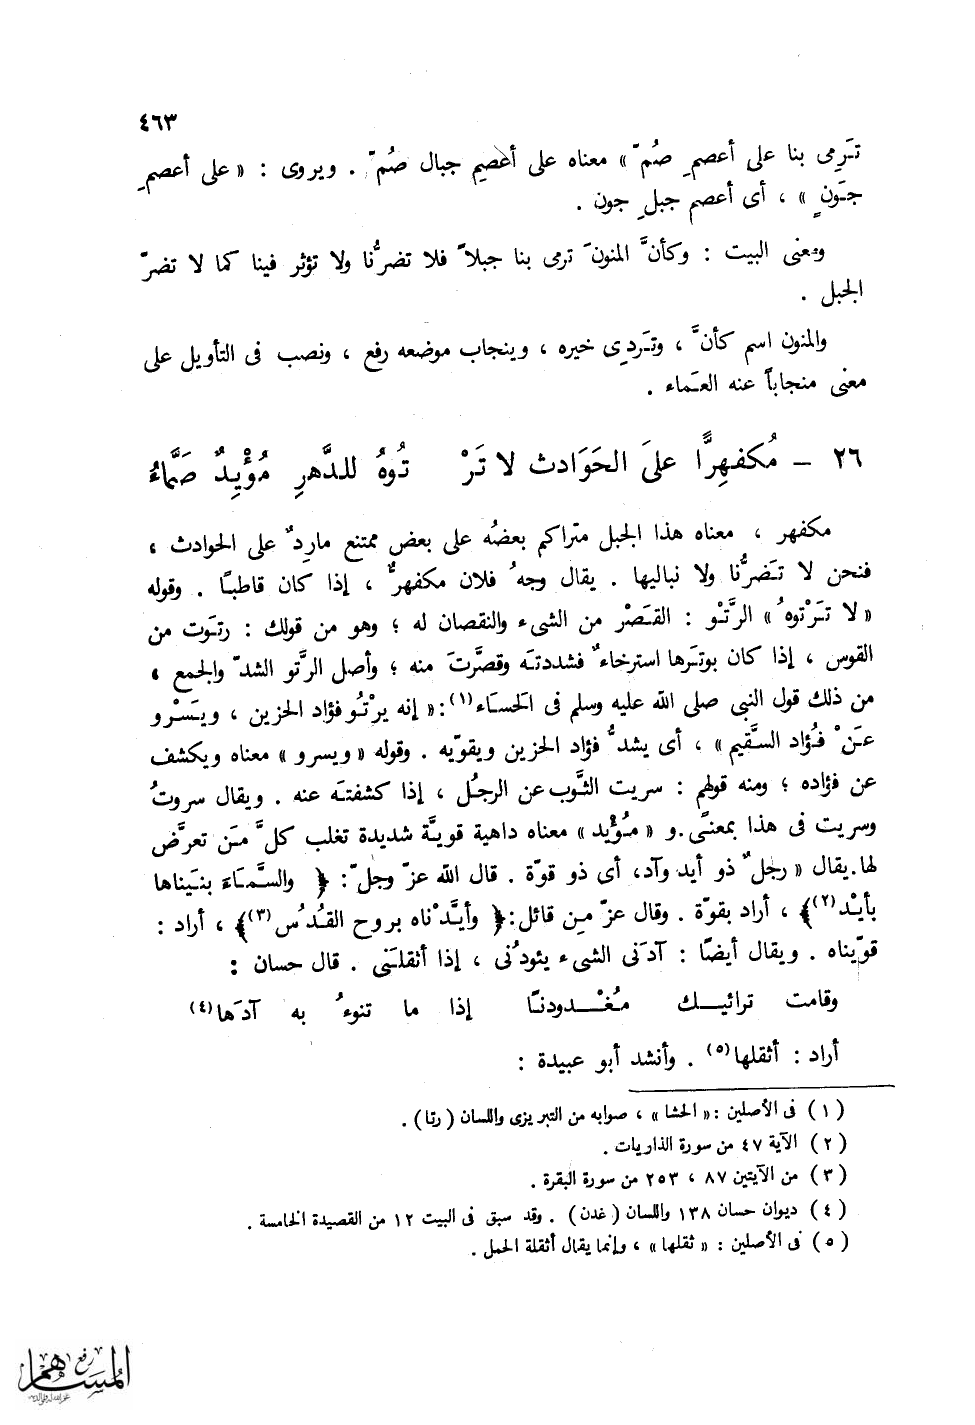 ٤٦٣
تَرمِى بنا على أعصمِ صُمّ » معناه على أعصمِ جبال صُمّ . ويروى : « على أعصمِ
جَونٍ » ، أى أعصم جبلِ جون .
ومعنى البيت : وكأنَّ المنونَ ترمى بنا جبلاً فلا تضرُّنا ولا تؤثر فينا كما لا تضرّ
الجبل .
والمنون اسم كأنَّ ، وتَردِى خبره ، وينجاب موضعه رفع ، ونصب فى التأويل على
معنى منجاباً عنه العَماء .
٢٦ – مُكفهِرًّا علىَ الحَوَادث لا تَرْ تُوهُ للدَّهرِ مُؤْيِدٌ صَمَّاءُ
مكفهر ، معناه هذا الجبل متراكم بعضُه على بعض ممتنع ماردٌ على الحوادث ،
فنحن لا تَضرُّنا ولا نباليها . يقال وجهُ فلان مكفهرٌّ ، إذا كان قاطبًا . وقوله
« لا تَرْتوهُ » الرَّتْو : القَصْر من الشىء والنقصان له ؛ وهو من قولك : رتَوت من
القوس ، إذا كان بوتَرها استرخاءٌ فشددتَه وقصَّرتَ منه ؛ وأصل الرَّتو الشدّ والجمع ،
من ذلك قول النبى صلى الله عليه وسلم فى الحَسَاء(١): « إنه يرْتُو فؤاد الحزين ، ويَسْرو
عَنْ فُؤاد السَّقيم » ، أى يشدُّ فؤاد الحزين ويقوّيه . وقوله « ويسرو » معناه ويكشف
عن فؤاده ؛ ومنه قولهم : سريت الثَّوب عن الرجُل ، إذا كشفتَه عنه . ويقال سروتُ
وسريت فى هذا بمعنًى. و « مُؤْيد » معناه داهية قويَّة شديدة تغلب كلَّ مَن تعرَّض
لها. يقال « رجلٌ ذو أيد وآد، أى ذو قوّة . قال الله عزّ وجلّ: ﴿ والسَّمَاءَ بنَيناها
بأيْد(٢)﴾ ، أراد بقوّة . وقال عزّ مِن قائل: ﴿ وأيَّدْناه بروح القُدُس(٣)﴾ ، أراد :
قوّيناه . ويقال أيضًا : آدَنى الشىء يئودُنى ، إذا أثقلَنى . قال حسان :
وقامت ترائيـــك مُغْـــدودنًا إذا ما تنوءُ به آدَها(٤)
أراد : أثقلها(٥) . وأنشد أبو عبيدة :
( ١ ) فى الأصلين : « الحشا » ، صوابه من التبريزى واللسان ( رتا ) .
( ٢ ) الآية ٤٧ من سورة الذاريات .
( ٣ ) من الآيتين ٨٧ ، ٢٥٣ من سورة البقرة .
( ٤ ) ديوان حسان ١٣٨ واللسان ( غدن ) . وقد سبق فى البيت ١٢ من القصيدة الخامسة .
( ٥ ) فى الأصلين : « ثقلها » ، وإنما يقال أثقلة الحمل .